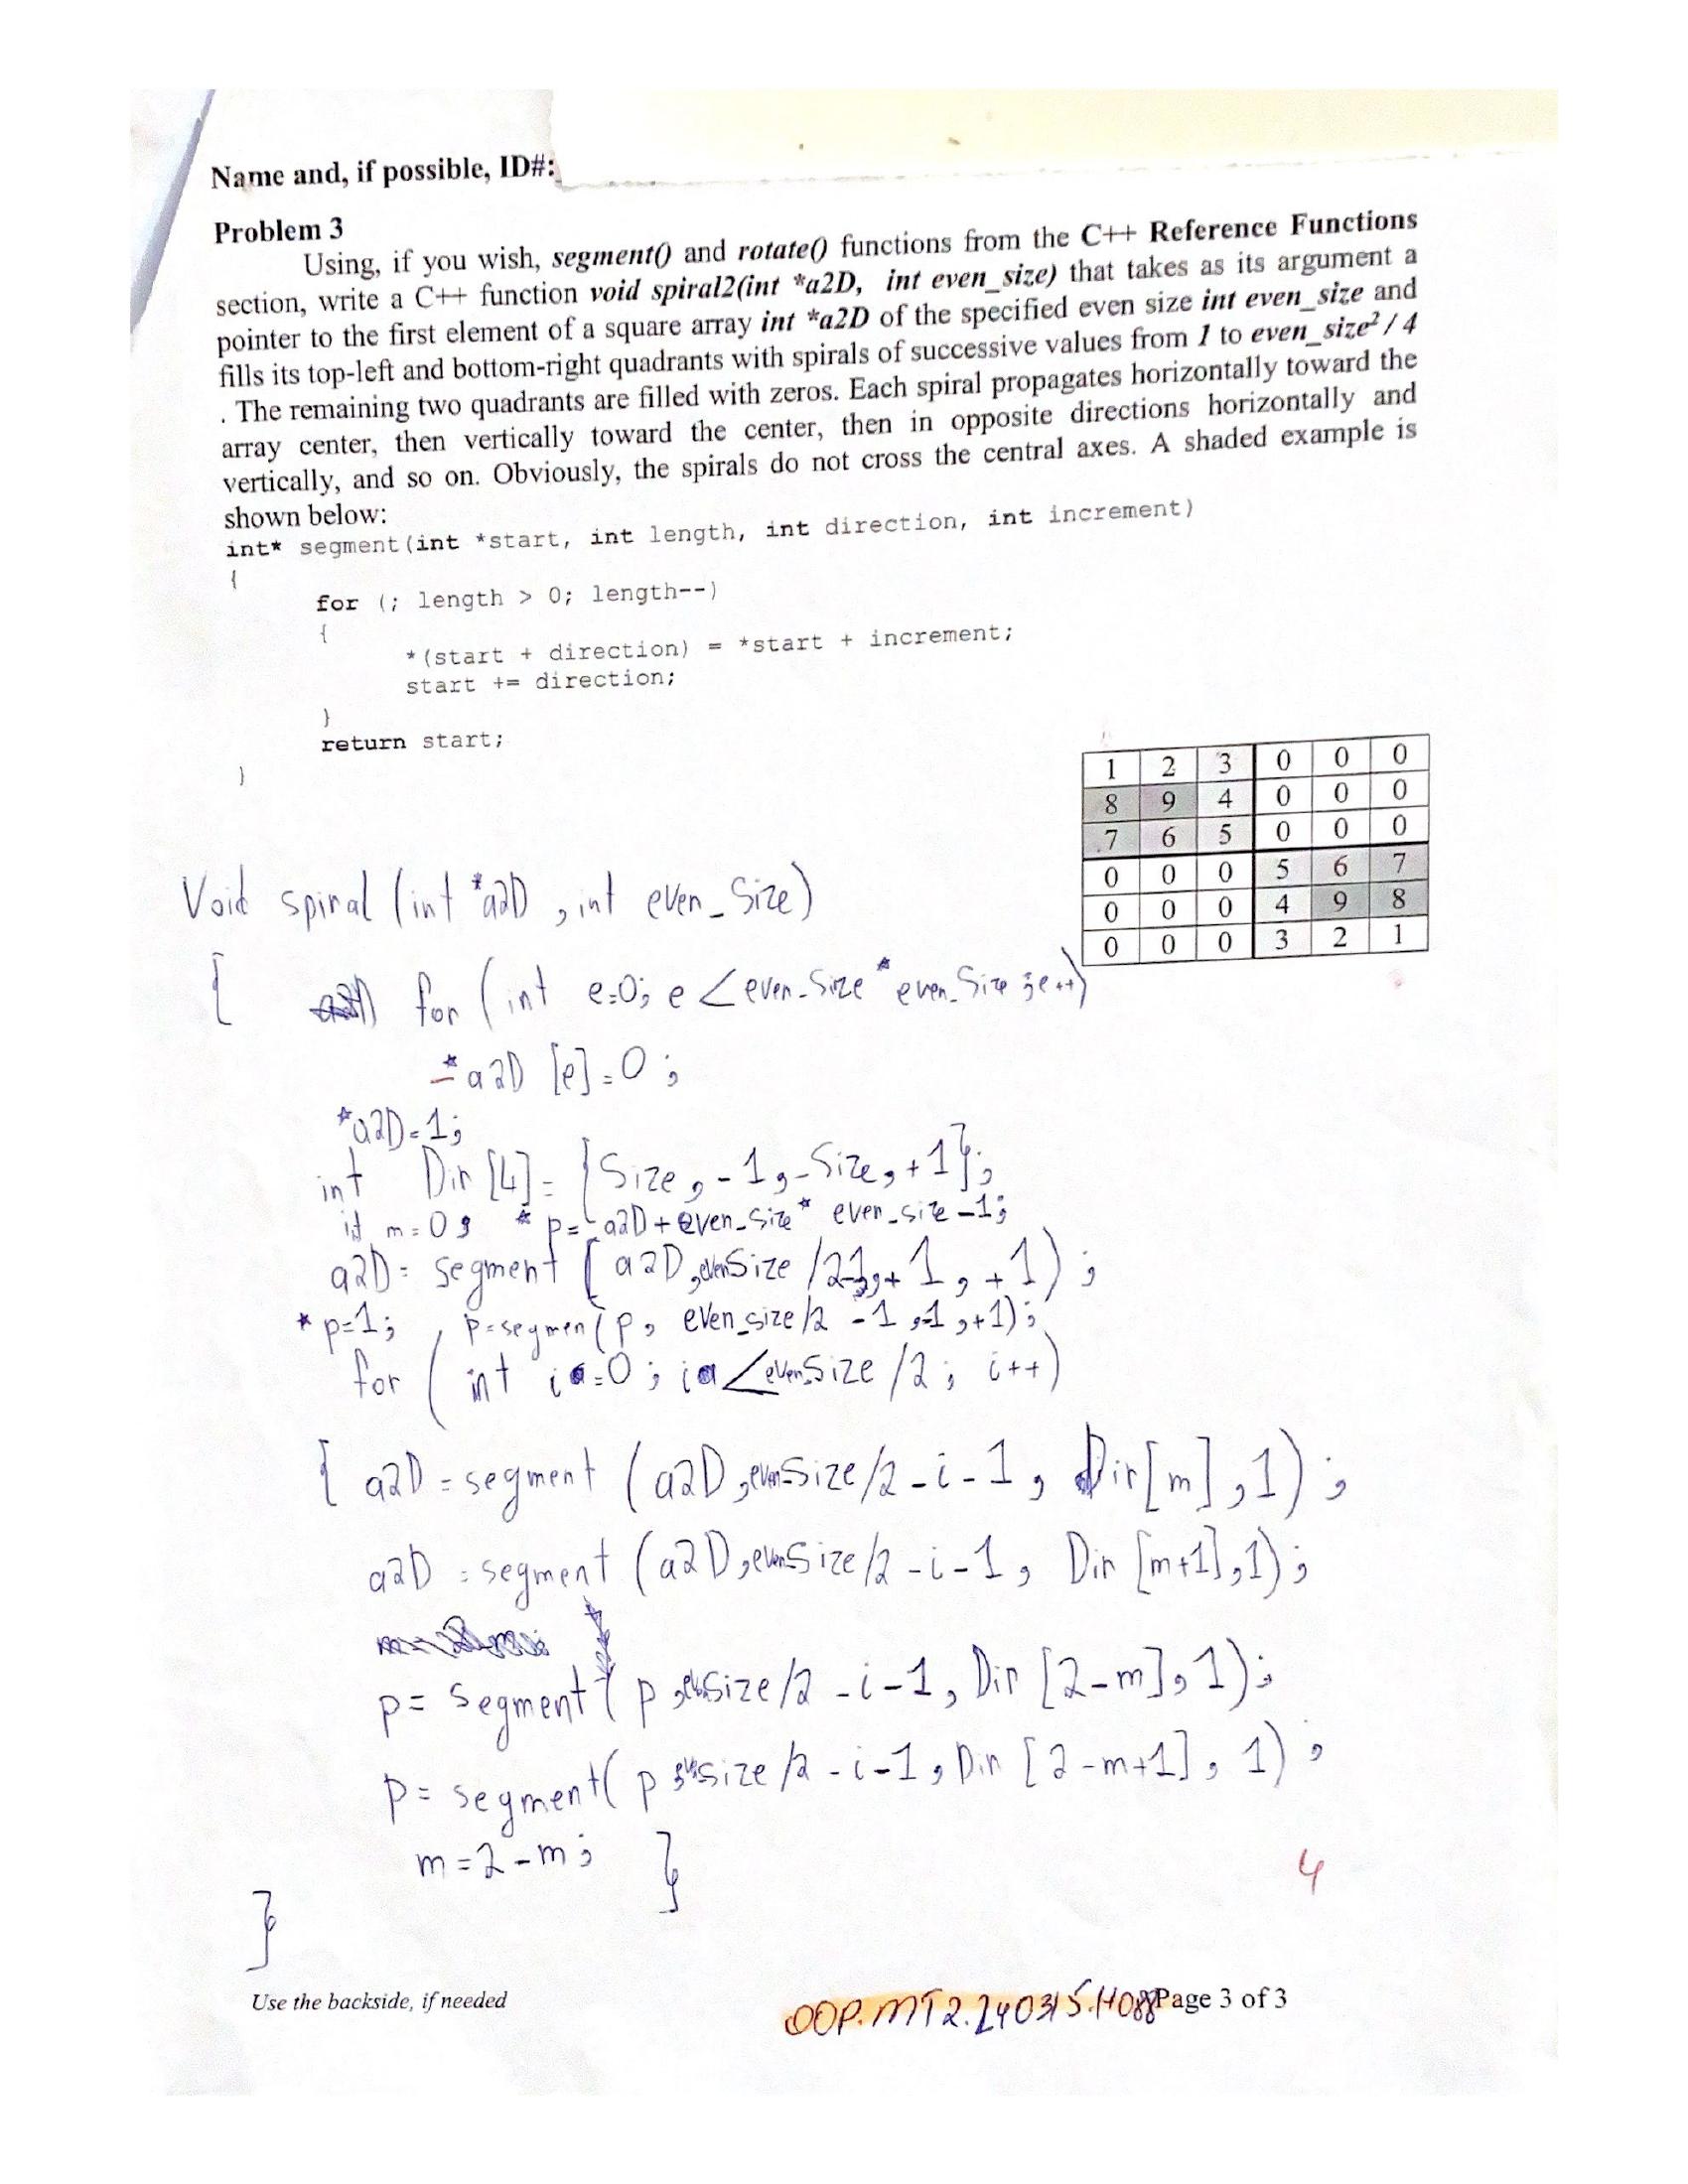 Name and, if possible, ID#:
Problem 3
Using, if you wish, segment() and rotate() functions from the C++ Reference Functions
section, write a C++ function void spiral2(int *a2D, int even_size) that takes as its argument a
pointer to the first element of a square array int *a2D of the specified even size int even_size and
fills its top-left and bottom-right quadrants with spirals of successive values from 1 to even_size² / 4
. The remaining two quadrants are filled with zeros. Each spiral propagates horizontally toward the
array center, then vertically toward the center, then in opposite directions horizontally and
vertically, and so on. Obviously, the spirals do not cross the central axes. A shaded example is
shown below:
int* segment(int *start, int length, int direction, int increment)
{
for (; length > 0; length--)
{
*(start + direction) = *start + increment;
start += direction;
}
return start;
}
1 2 3 0 0 0
8 9 4 0 0 0
7 6 5 0 0 0
0 0 0 5 6 7
0 0 0 4 9 8
0 0 0 3 2 1
Void spiral (int *a2D , int even_Size)
{ for (int e=0; e < even_Size * even_Size ; e++)
*a2D [e] = 0 ;
*a2D = 1;
int Dir [4] = {Size, -1, -Size, +1};
it m = 0, * p = a2D + even_size * even_size -1;
a2D = segment (a2D, evenSize /2-1, +1, +1) ;
*p=1; p=segmen(p, even_size/2 -1,-1,+1);
for (int i=0; i < evenSize /2; i++)
{ a2D = segment (a2D, evenSize/2 - i - 1, Dir[m], 1) ;
a2D = segment (a2D, evenSize/2 - i - 1, Dir [m+1], 1) ;
p = segment ( p, size/2 - i - 1, Dir [2-m], 1);
p = segment( p size/2 - i - 1, Dir [2-m+1], 1) ;
m = 2 - m ; }
4
}
Use the backside, if needed
OOP.MT2.240315.H088 Page 3 of 3